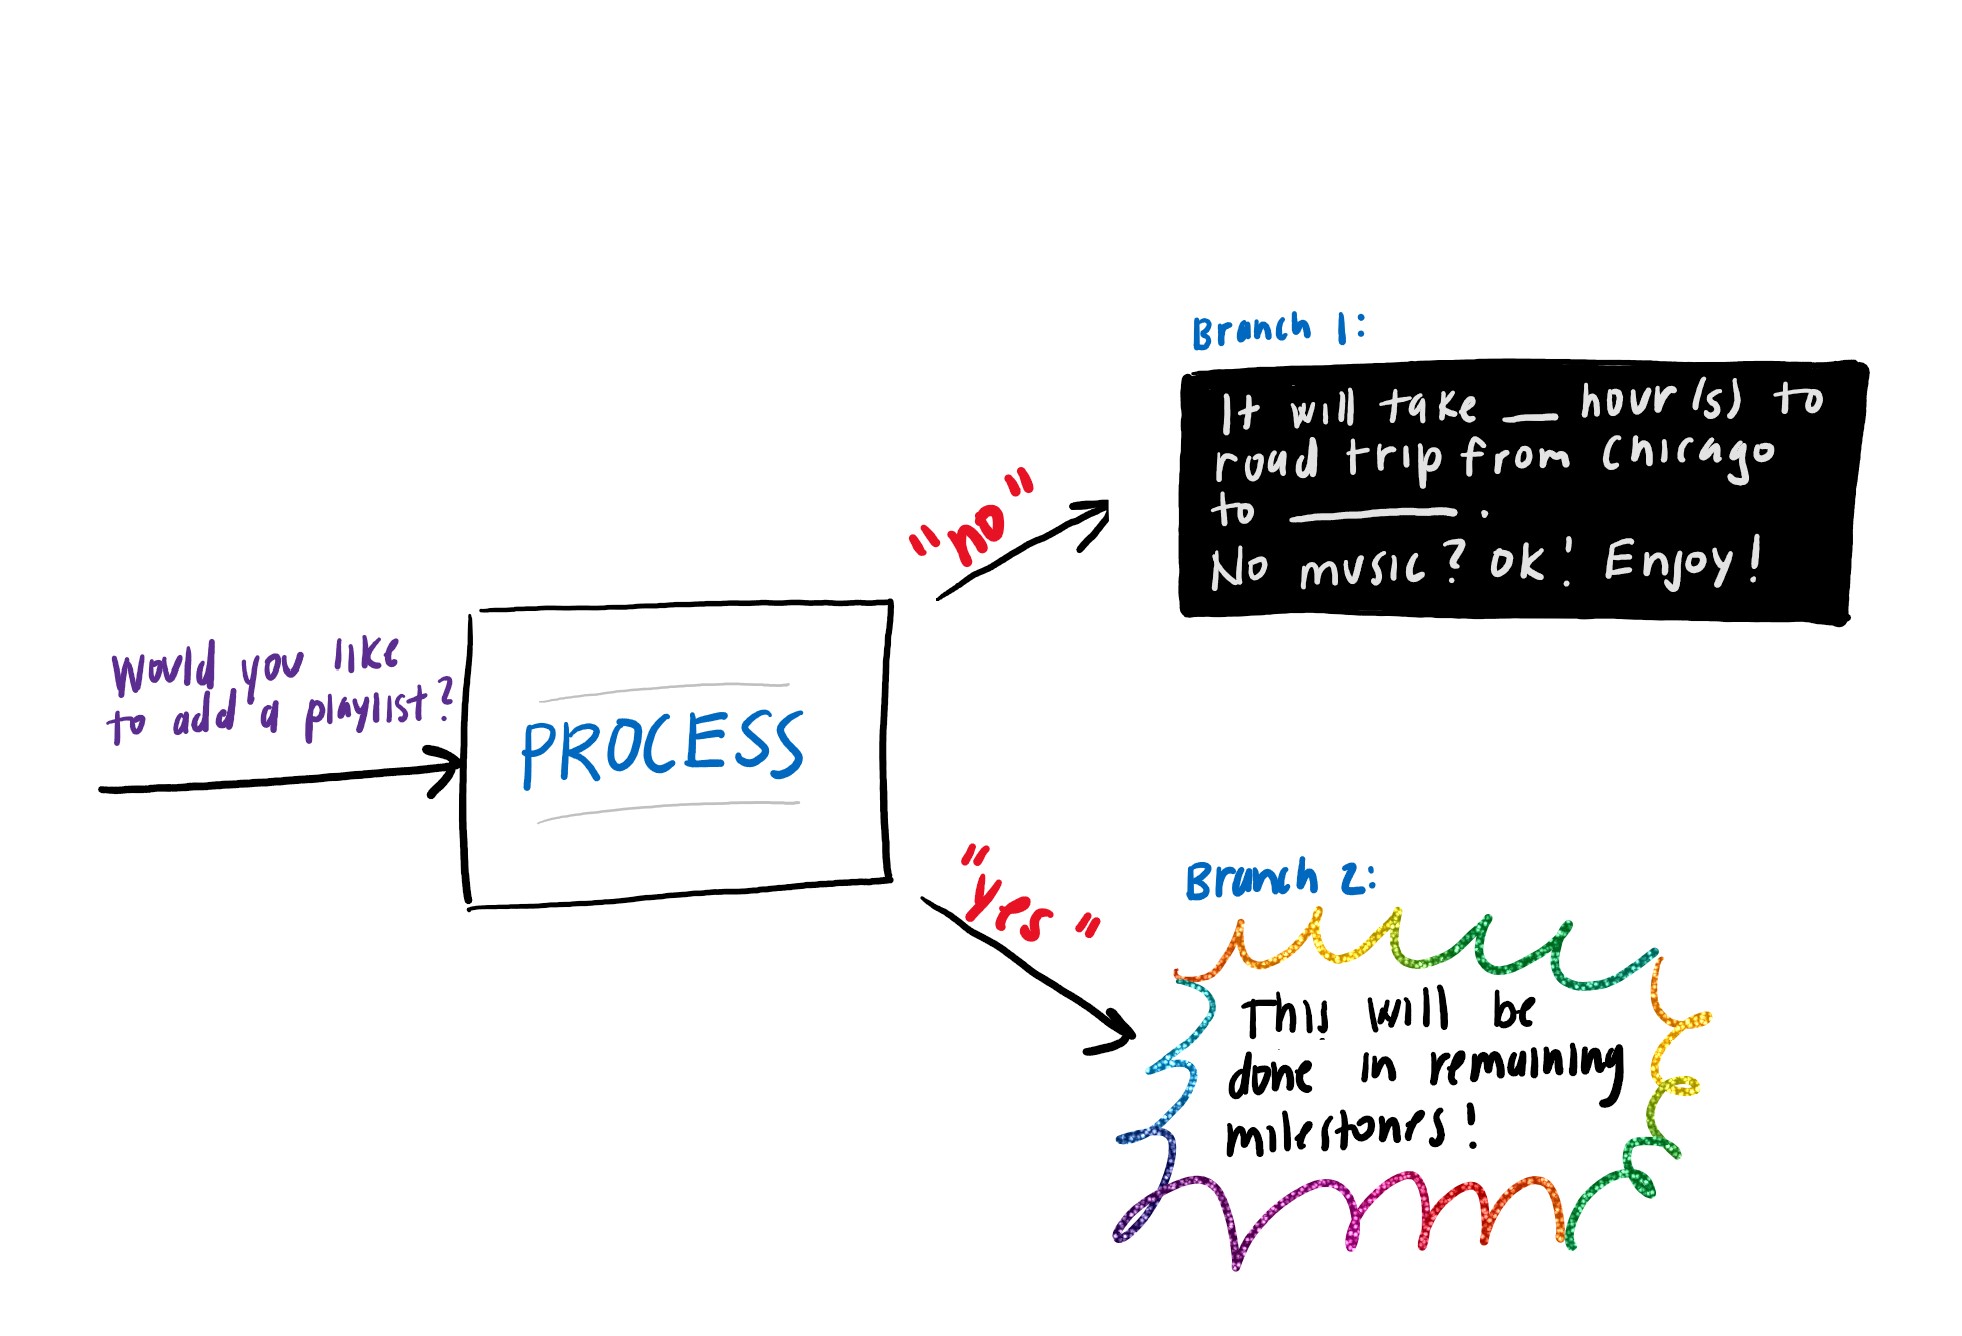 Would you like
to add a playlist?
PROCESS
"no"
"yes"
Branch 1:
It will take __ hour(s) to
road trip from Chicago
to ______.
No music? OK! Enjoy!
Branch 2:
This will be
done in remaining
milestones!